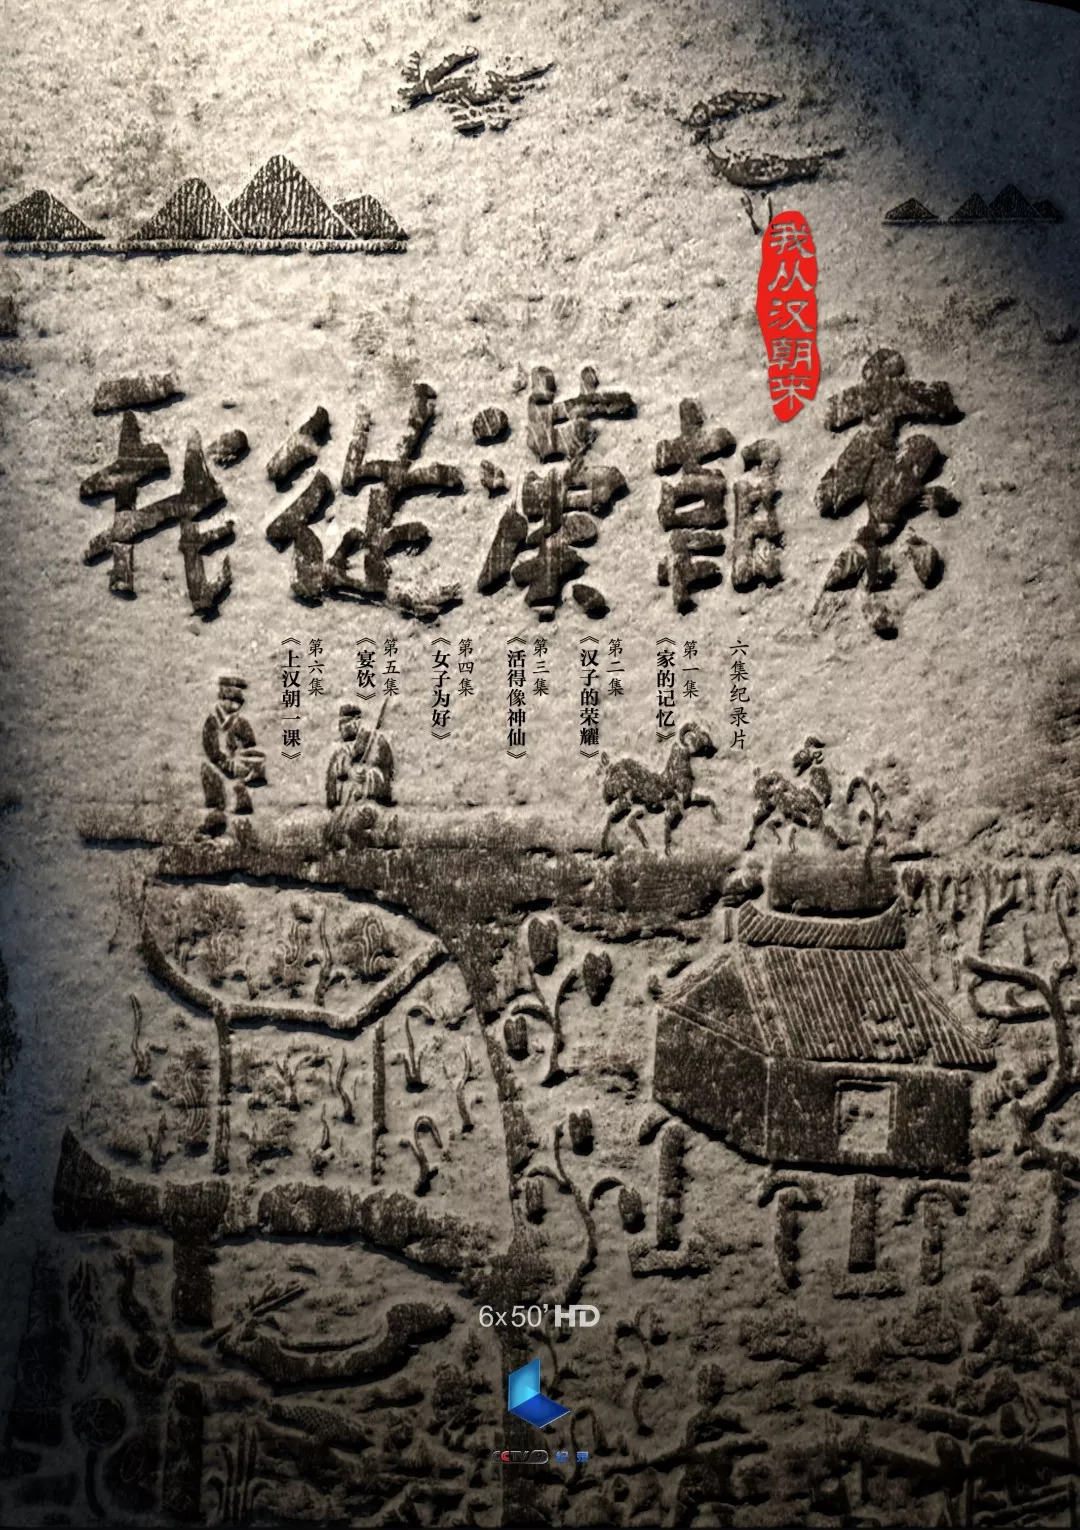 我从汉朝来
我從漢朝来
六集纪录片
第一集
《家的记忆》
第二集
《汉子的荣耀》
第三集
《活得像神仙》
第四集
《女子为好》
第五集
《宴饮》
第六集
《上汉朝一课》
6x50'HD
CCTV9 纪录